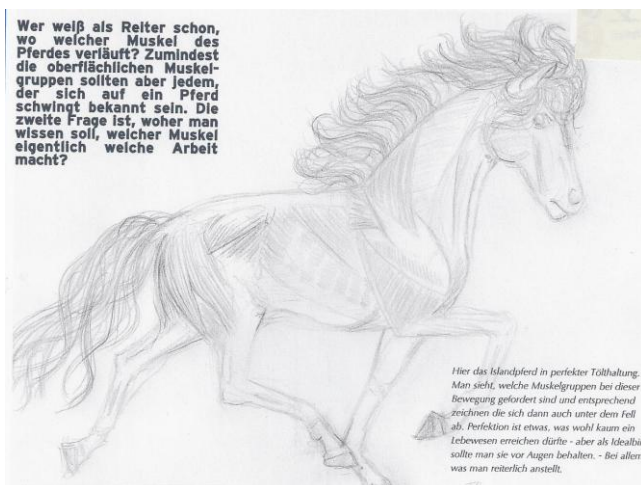 Wer weiß als Reiter schon,
wo welcher Muskel des
Pferdes verläuft? Zumindest
die oberflächlichen Muskel-
gruppen sollten aber jedem,
der sich auf ein Pferd
schwingt bekannt sein. Die
zweite Frage ist, woher man
wissen soll, welcher Muskel
eigentlich welche Arbeit
macht?
Hier das Islandpferd in perfekter Tölthaltung.
Man sieht, welche Muskelgruppen bei dieser
Bewegung gefordert sind und entsprechend
zeichnen die sich dann auch unter dem Fell
ab. Perfektion ist etwas, was wohl kaum ein
Lebewesen erreichen dürfte - aber als Idealbil
sollte man sie vor Augen behalten. - Bei allem
was man reiterlich anstellt.